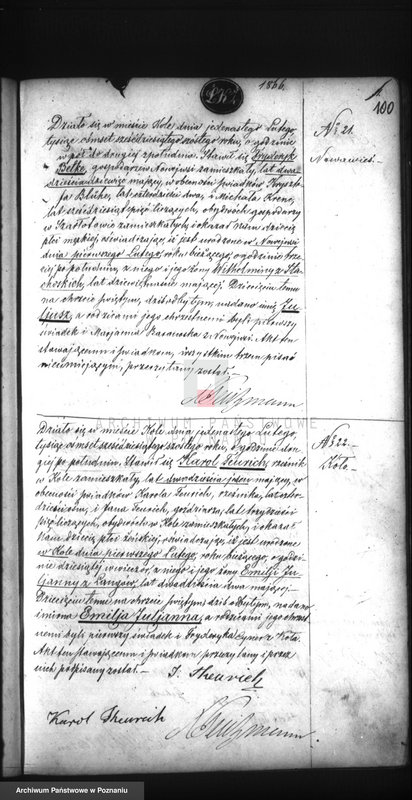 1866.
100
Działo się w mieście Kole dnia jedenastego Lutego,
tysiąc ośmset sześćdziesiątego szóstego roku, o godzinie
w pół do drugiej z południa. Stawił się Fryderyk
Betke, gospodarz w Nowejwsi zamieszkały, lat dwa-
dzieścia dziewięć mający, w obecności świadków Krysztofa
Blühe, lat czterdzieści dwa, i Michała Krenc,
lat sześćdziesiąt pięć liczących, obydwóch gospodarzy
w zamieszkałych, i okazał Nam dziecię
płci męzkiej, oświadczając, iż jest urodzone w Nowejwsi
dnia pierwszego Lutego, roku bieżącego, o godzinie trze-
ciej po południu, z niego i jego żony Wilhelminy z
lat dziewiętnaście mającej. Dziecięciu temu
na chrzcie świętym, dziś odbytym, nadano imię Ju-
ljusz, a rodzicami jego chrzestnemi byli pierwszy
świadek i Marjanna z Nowejwsi. Akt ten
stawającemu i świadkom, wszystkim trzem pisać
nieumiejącym, przeczytany został.
№ 21.
Nowawieś.
Działo się w mieście Kole, dnia jedenastego Lutego,
tysiąc ośmset sześćdziesiątego szóstego roku, o godzinie dru-
giej po południu. Stawił się Karol Teurich, rzeźnik
w Kole zamieszkały, lat dwadzieścia jeden mający, w
obecności świadków Karola Teurich, rzeźnika, lat
i Jana Teurich, lat trzydzieści
pięć liczących, obydwóch w Kole zamieszkałych, i okazał
Nam dziecię płci żeńskiej, oświadczając, iż jest urodzone
w Kole dnia pierwszego Lutego, roku bieżącego, o godzi-
nie dziesiątej wieczór, z niego i jego żony Emilji Ju-
ljanny z Langów, lat dwadzieścia dwa mającej.
Dziecięciu temu na chrzcie świętym, dziś odbytym, nadano
imiona Emilja Juljanna, a rodzicami jego chrzest-
nemi byli pierwszy świadek i Fryderyka z Koła.
Akt ten stawającemu i świadkom przeczytany i przez
nich podpisany został.
J. Theurich
Karol Theurich
№ 22.
Koło.
Archiwum Państwowe w Poznaniu